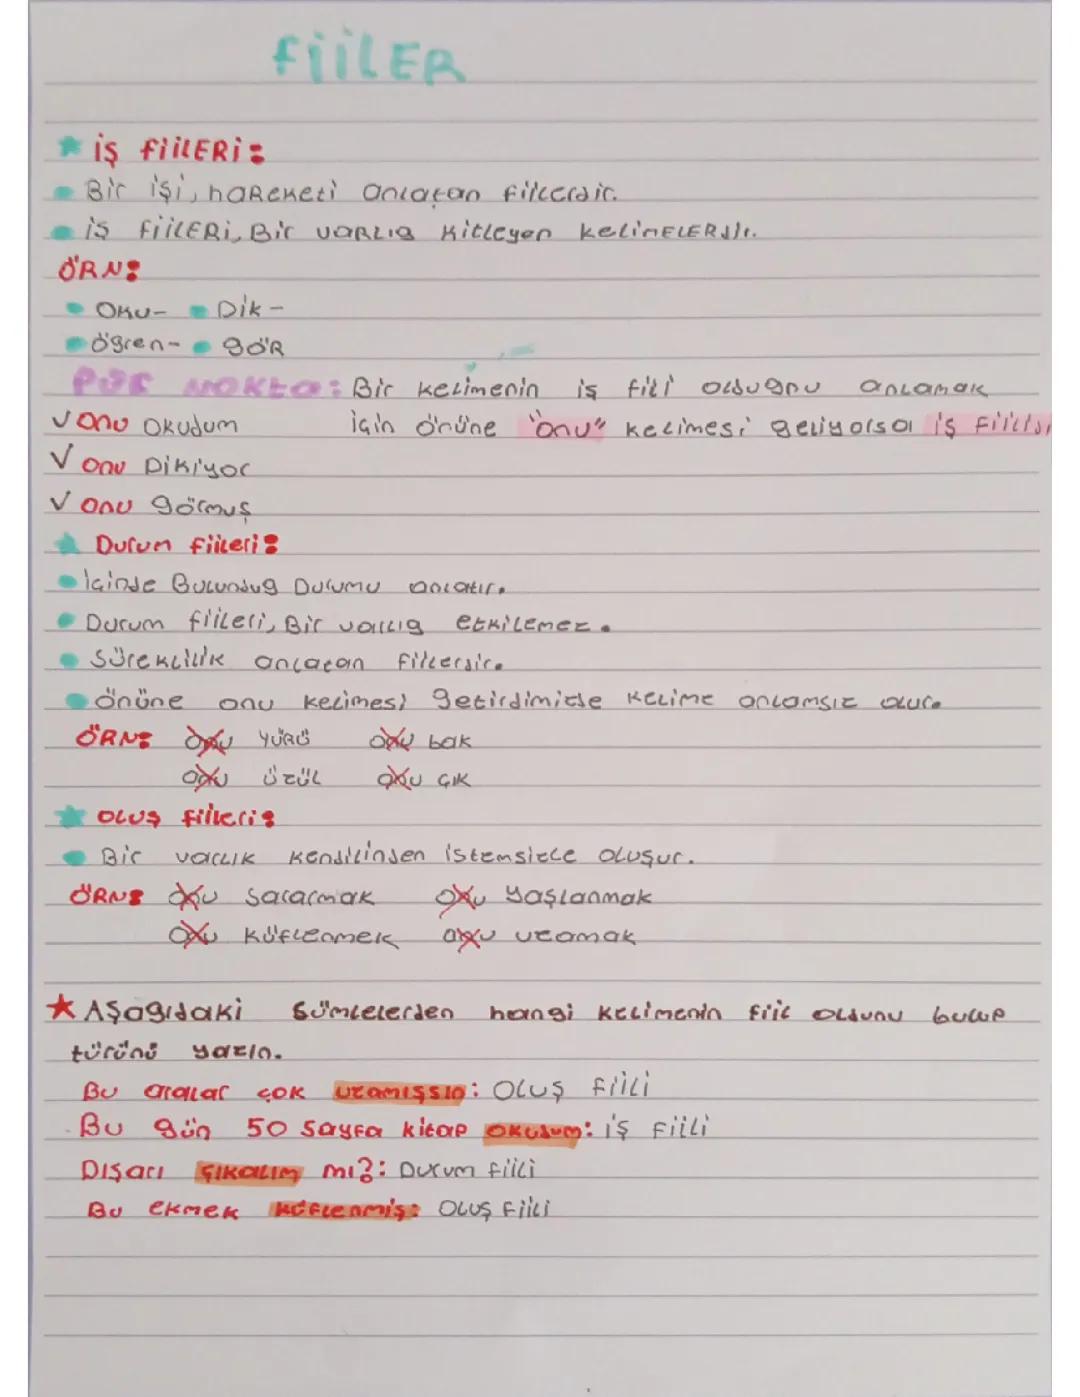 FİİLER
İŞ FİİLERİ:
Bir işi, hareketi anlatan fiillerdir.
İŞ FİİLERİ, Bir varlıg kitleyen kelimelerdir.
ÖRN:
Oku- Dik-
Ögren- gör
Püf Nokta: Bir kelimenin iş fiili oldugnu anlamak
✓ Onu Okudum için önüne "onu" kelimesi geliyorsa iş fiilidi
✓ Onu Dikiyor
✓ Onu görmuş
Durum fiileri:
İçinde Bulundug Durumu anlatır.
Durum fiileri, Bir varlıg etkilemez.
Süreklilik anlatan fiillerdir.
önüne onu kelimesi getirdimizde kelime anlamsız olur.
ÖRN: onu yürü onu bak
onu üzül onu çık
Oluş fiileri:
Bir varlık kendilinden istemsizle oluşur.
ÖRN: onu Sararmak onu Yaşlanmak
onu Küflenmek onu uzamak
★ Aşagıdaki Cümlelerden hangi kelimenin fiil oldunu bulup
türünü yazın.
Bu aralar çok uzamışsın: Oluş fiili
Bu gün 50 Sayfa kitap okudum: iş fiili
Dışarı çıkalım mı?: Durum fiili
Bu ekmek küflenmiş: Oluş fiili